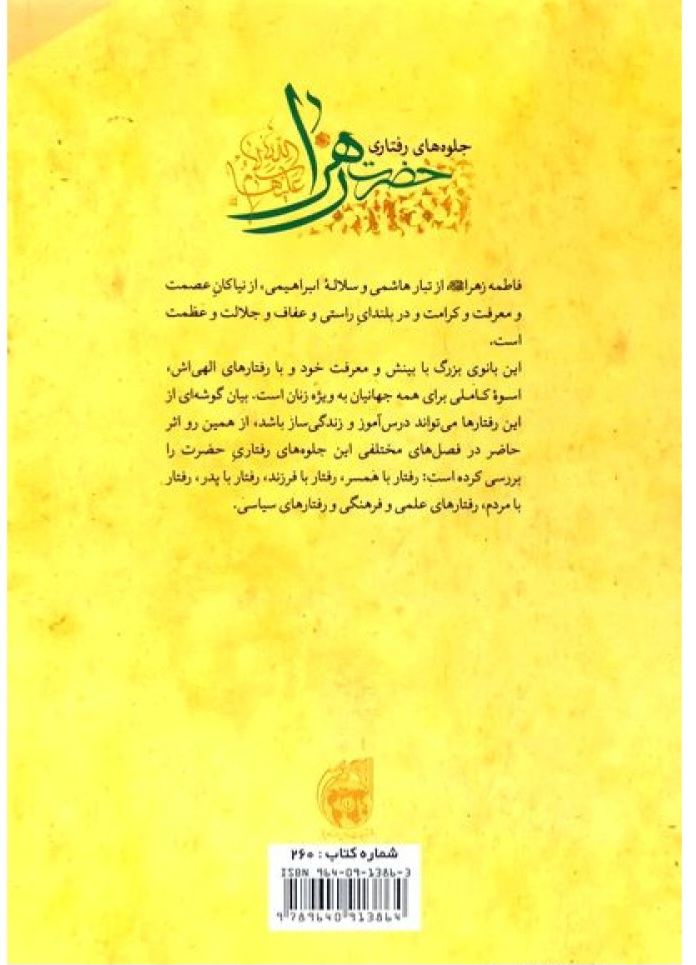 جلوه‌های رفتاری
حضرت زهرا
سلام الله علیها
فاطمه زهراﷺ، از تبار هاشمی و سلالهٔ ابراهیمی، از نیاکانِ عصمت
و معرفت و کرامت و در بلندایِ راستی و عفاف و جلالت و عظمت
است.
این بانوی بزرگ با بینش و معرفت خود و با رفتارهای الهی‌اش،
اسوهٔ کاملی برای همه جهانیان به ویژه زنان است. بیان گوشه‌ای از
این رفتارها می‌تواند درس‌آموز و زندگی‌ساز باشد، از همین رو اثر
حاضر در فصل‌های مختلفی این جلوه‌های رفتاریِ حضرت را
بررسی کرده است: رفتار با همسر، رفتار با فرزند، رفتار با پدر، رفتار
با مردم، رفتارهای علمی و فرهنگی و رفتارهای سیاسی.
شماره کتاب: ۲۶۰
ISBN 964-09-1386-3
9 789640 913864